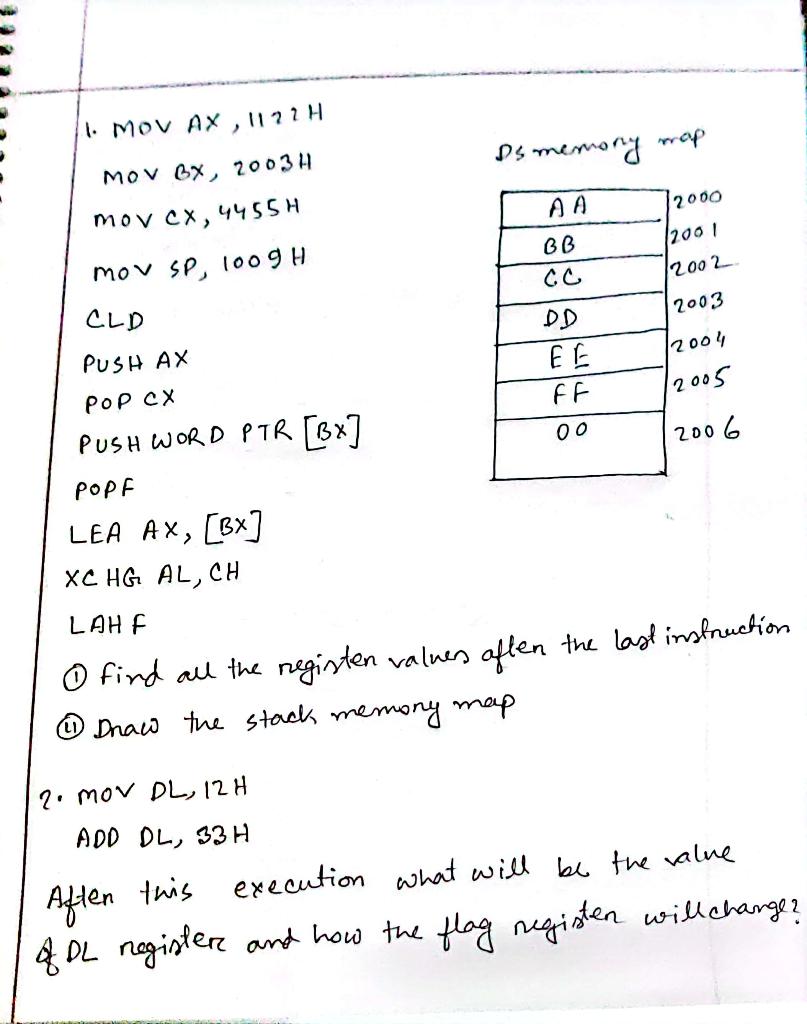 1. MOV AX, 1122H
MOV BX, 2003H
MOV CX, 4455H
MOV SP, 1009H
CLD
PUSH AX
POP CX
PUSH WORD PTR [BX]
POPF
LEA AX, [BX]
XCHG AL, CH
LAHF
DS memory map
AA 2000
BB 2001
CC 2002
DD 2003
EE 2004
FF 2005
00 2006
(I) Find all the register values after the last instruction
(II) Draw the stack memory map
2. MOV DL, 12H
ADD DL, 33H
After this execution what will be the value
of DL register and how the flag register will change?